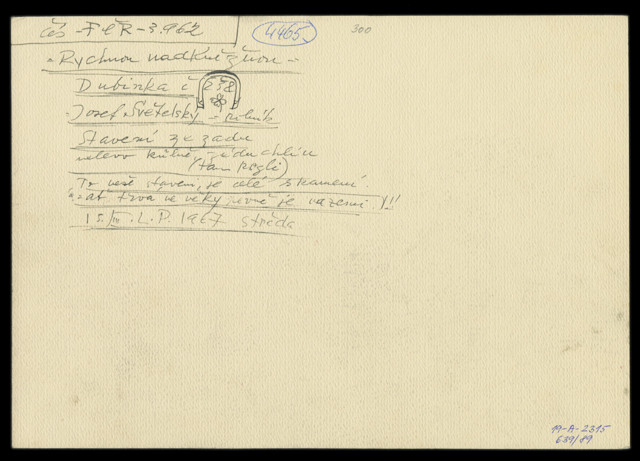 čs - FER - 3.962
4465.
300
- Rychnov nad Kněžnou -
Dubinka č 258
- Josef Světelský - rolník
Stavení ze zadu
vlevo kůlně, vzadu chlív
(tam
To vaše stavení, je celé s kamení.
ať trva ve věky pevně je na zemi)!!
15./III. L.P. 1967 středa
19-A-2315
689/89